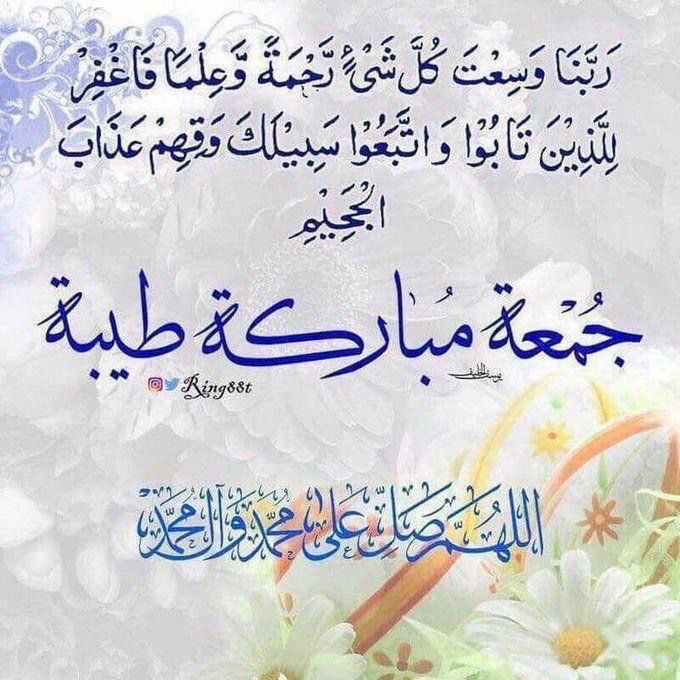 رَبَّنَا وَسِعْتَ كُلَّ شَيْءٍ رَّحْمَةً وَّعِلْمًا فَاغْفِرْ
لِلَّذِيْنَ تَابُوْا وَاتَّبَعُوْا سَبِيْلَكَ وَقِهِمْ عَذَابَ
الْجَحِيْمِ
جُمْعة مُباركة طيبة
Ring88t
اللهُمَّ صَلِّ عَلىٰ مُحَمَّدٍ وَآلِ مُحَمَّدٍ